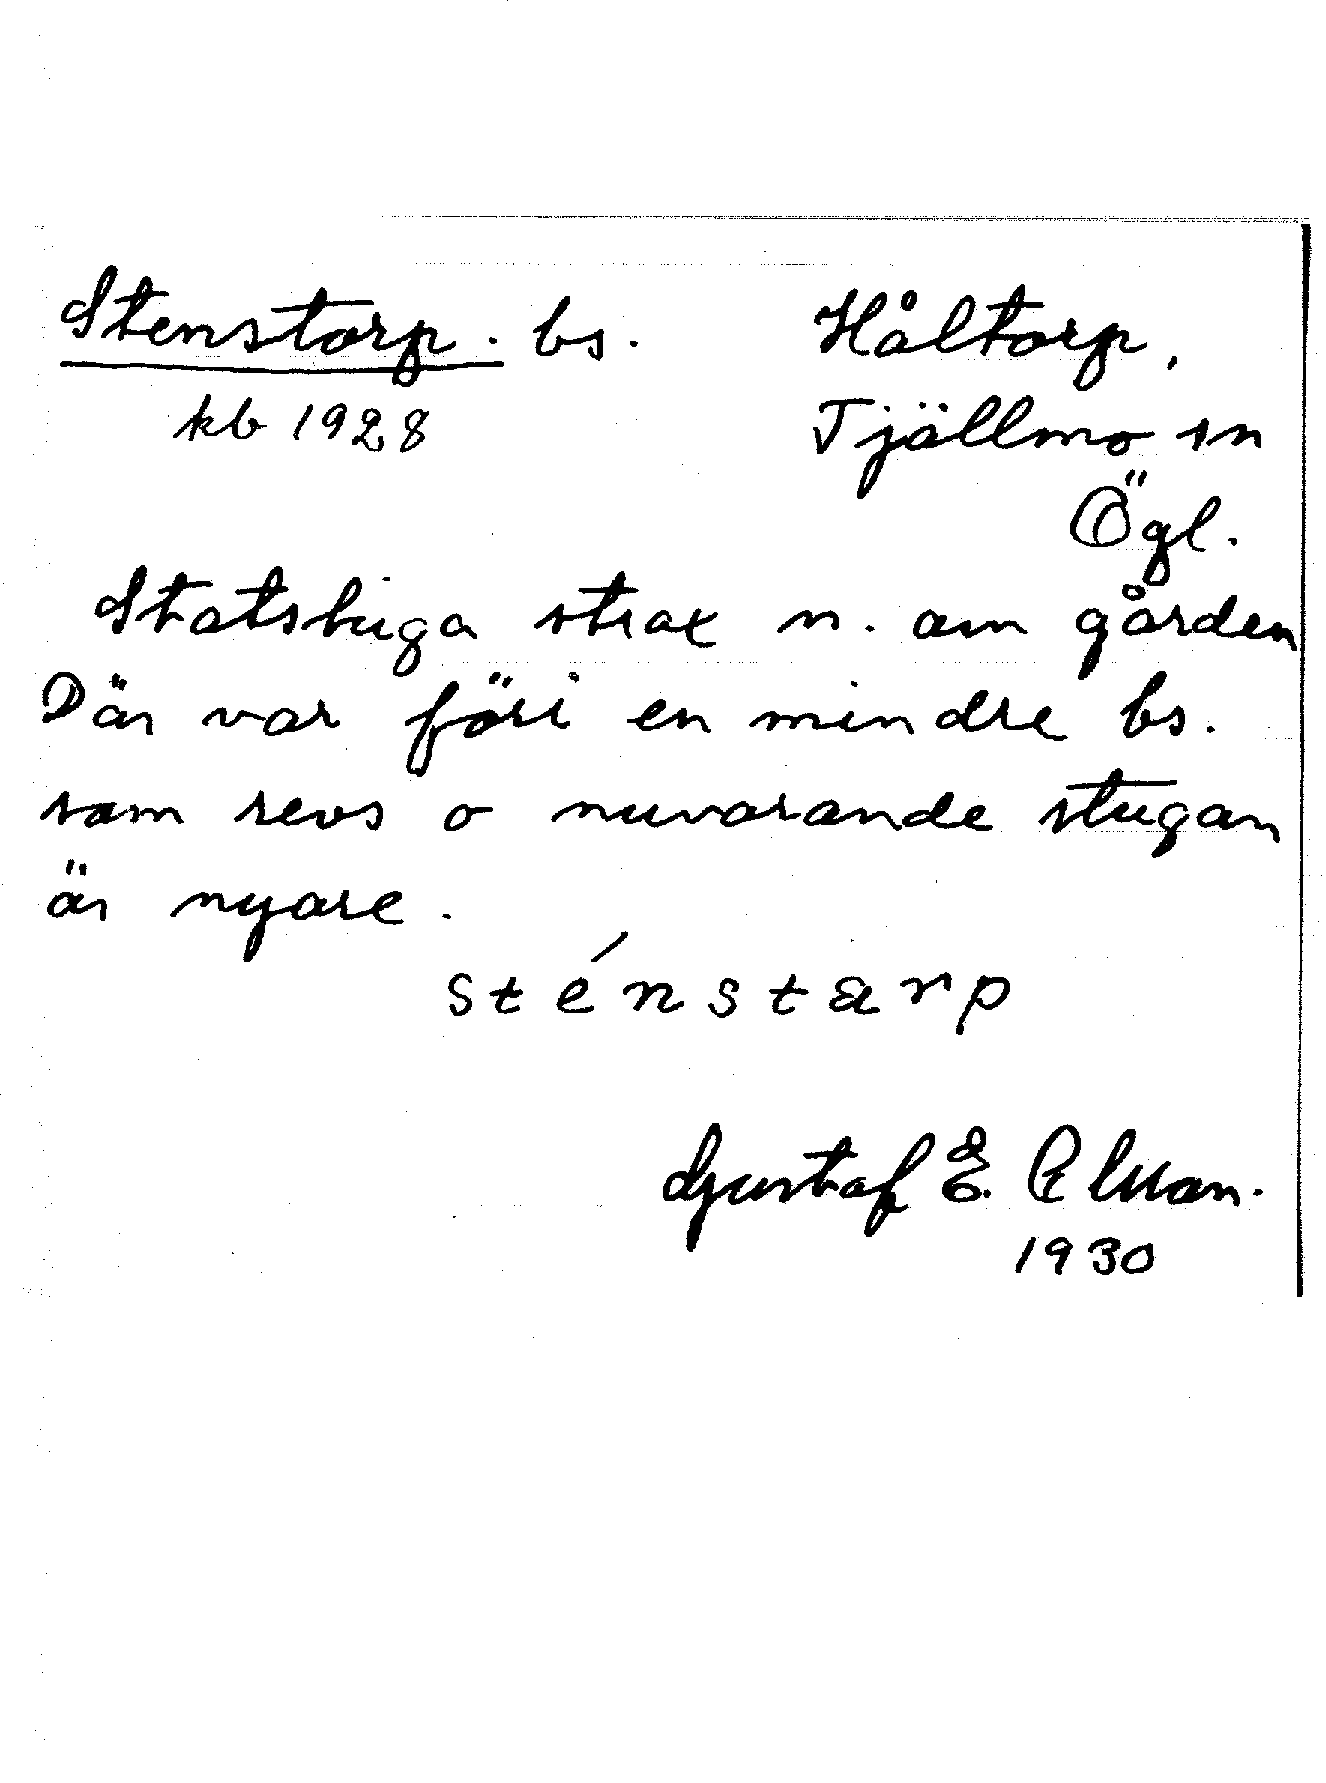 Stenstorp. bs. Håltorp,
kb 1928 Tjällmo sn
Ögl.
Statstuga strax n. om gården
Där var förr en mindre bs.
som revs o nuvarande stugan
är nyare.
sténstarp
Gustaf E.
1930